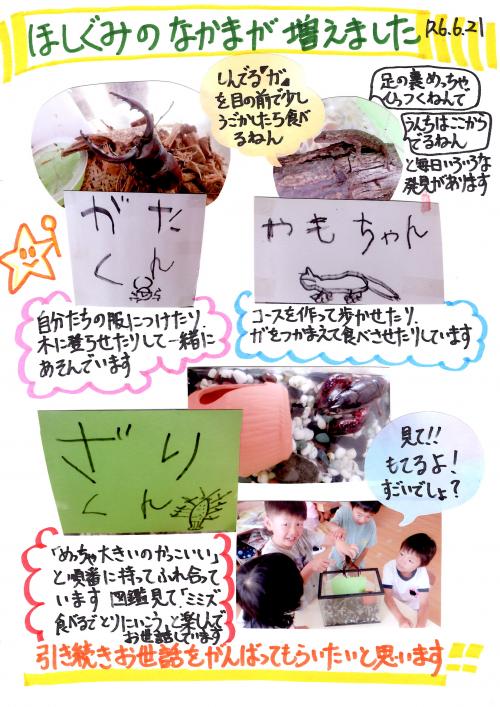 ほしぐみのなかまが増えました
R6.6.21
しんでる『ガ』
を目の前で少し
うごかしたら食べ
るねん
足の裏めっちゃ
くっつくねんで
うんちはここから
でるねん
と毎日いろいろな
発見があります
がた
くん
やもちゃん
自分たちの服につけたり、
木に登らせたりして一緒に
あそんでいます
コースを作って歩かせたり、
ガをつかまえて食べさせたりしています
ざり
くん
見て!!
もてるよ！
すごいでしょ？
「めっちゃ大きいのかっこいい」
と順番に持ってふれ合って
います 図鑑見て「ミミズ
食べるでとりにいこう」と楽しんで
お世話しています
引き続きお世話をがんばってもらいたいと思います!!